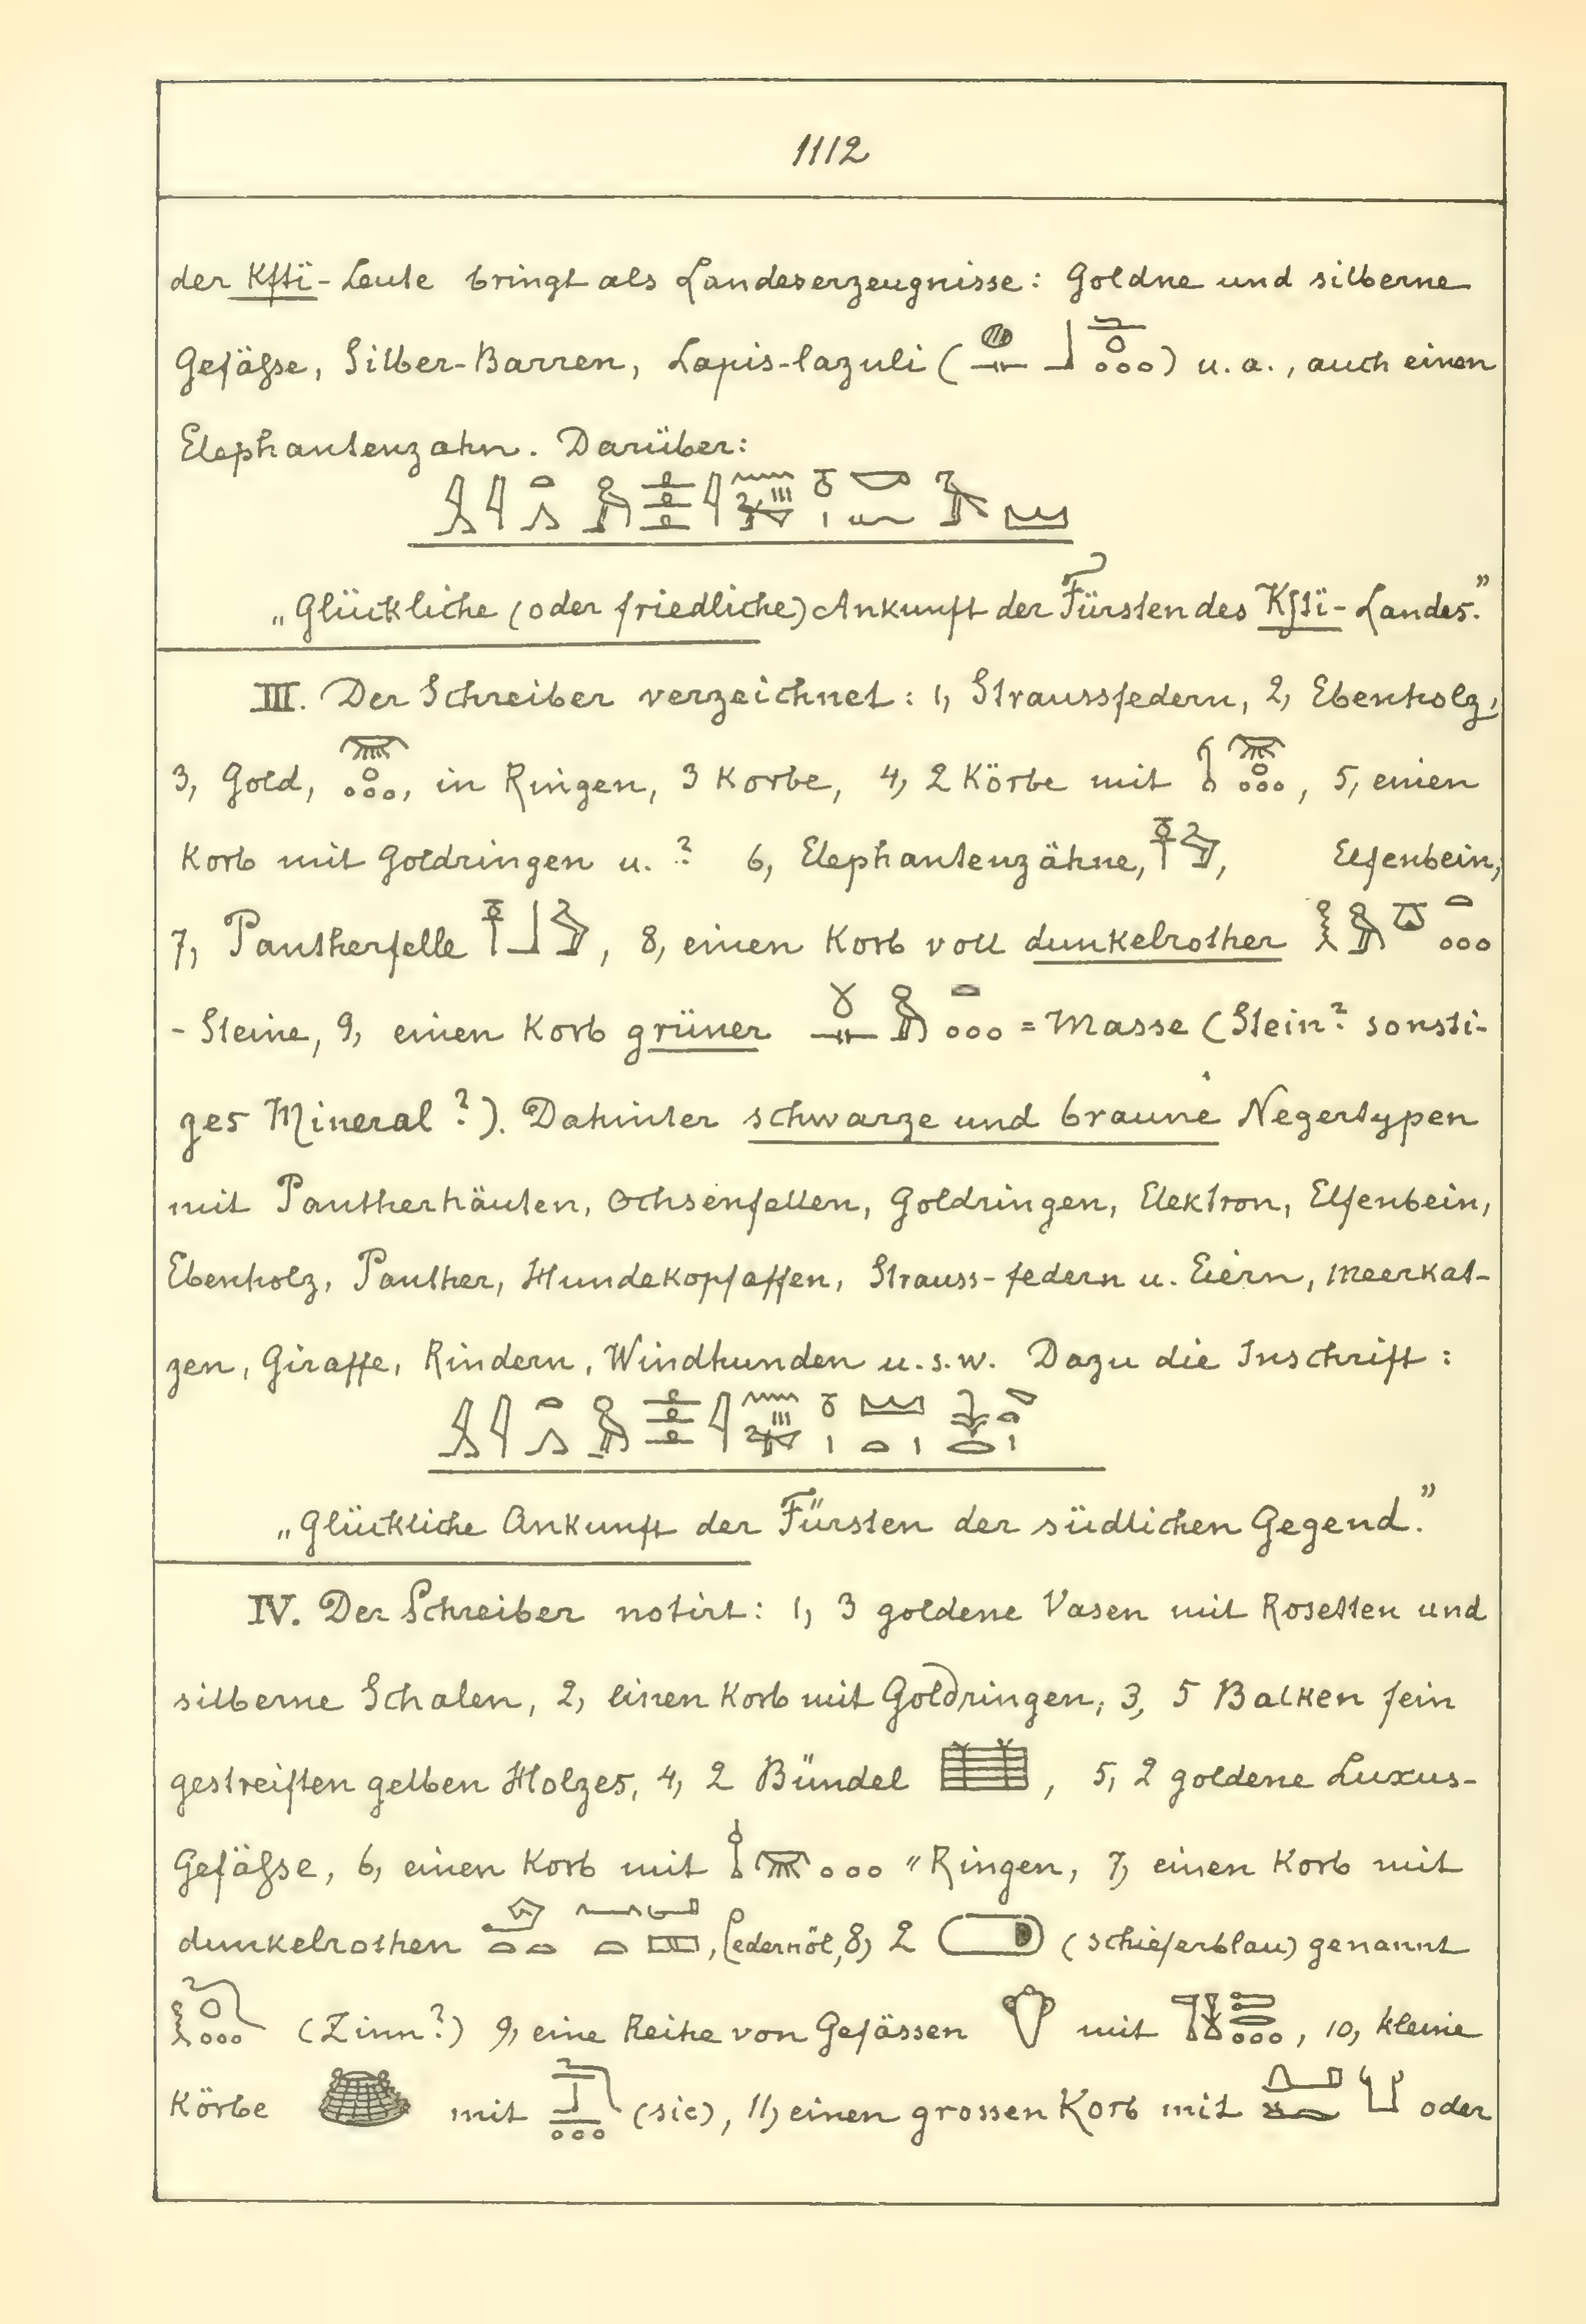 1112
der Kftï-Leute bringt als Landeserzeugnisse: Goldne und silberne
Gefäßse, Silber-Barren, Lapis-lazuli ( ) u. a., auch einen
Elephantenzahn. Darüber:
„Glückliche (oder friedliche) Ankunft der Fürsten des Kftï-Landes.”
III. Der Schreiber verzeichnet: 1, Straussfedern, 2, Ebenholz,
3, Gold, , in Ringen, 3 Korbe, 4, 2 Körbe mit , 5, einen
Korb mit Goldringen u. ? 6, Elephantenzähne, , Elfenbein,
7, Pantherfelle , 8, einen Korb voll dunkelrother
- Steine, 9, einen Korb grüner = Masse (Stein? sonsti-
ges Mineral?). Dahinter schwarze und braune Negertypen
mit Pantherhäuten, Ochsenfellen, Goldringen, Elektron, Elfenbein,
Ebenholz, Panther, Hundekopfaffen, Strauss-federn u. Eiern, Meerkat-
zen, Giraffe, Rindern, Windhunden u. s. w. Dazu die Inschrift:
„Glückliche Ankunft der Fürsten der südlichen Gegend.”
IV. Der Schreiber notirt: 1, 3 goldene Vasen mit Rosetten und
silberne Schalen, 2, einen Korb mit Goldringen, 3, 5 Balken fein
gestreiften gelben Holzes, 4, 2 Bündel , 5, 2 goldene Luxus-
Gefäßse, 6, einen Korb mit " Ringen, 7, einen Korb mit
dunkelrothen , Cedernöl, 8, 2 (schieferblau) genannt
(Zinn?) 9, eine Reihe von Gefässen mit , 10, kleine
Körbe mit (sic), 11, einen grossen Korb mit oder